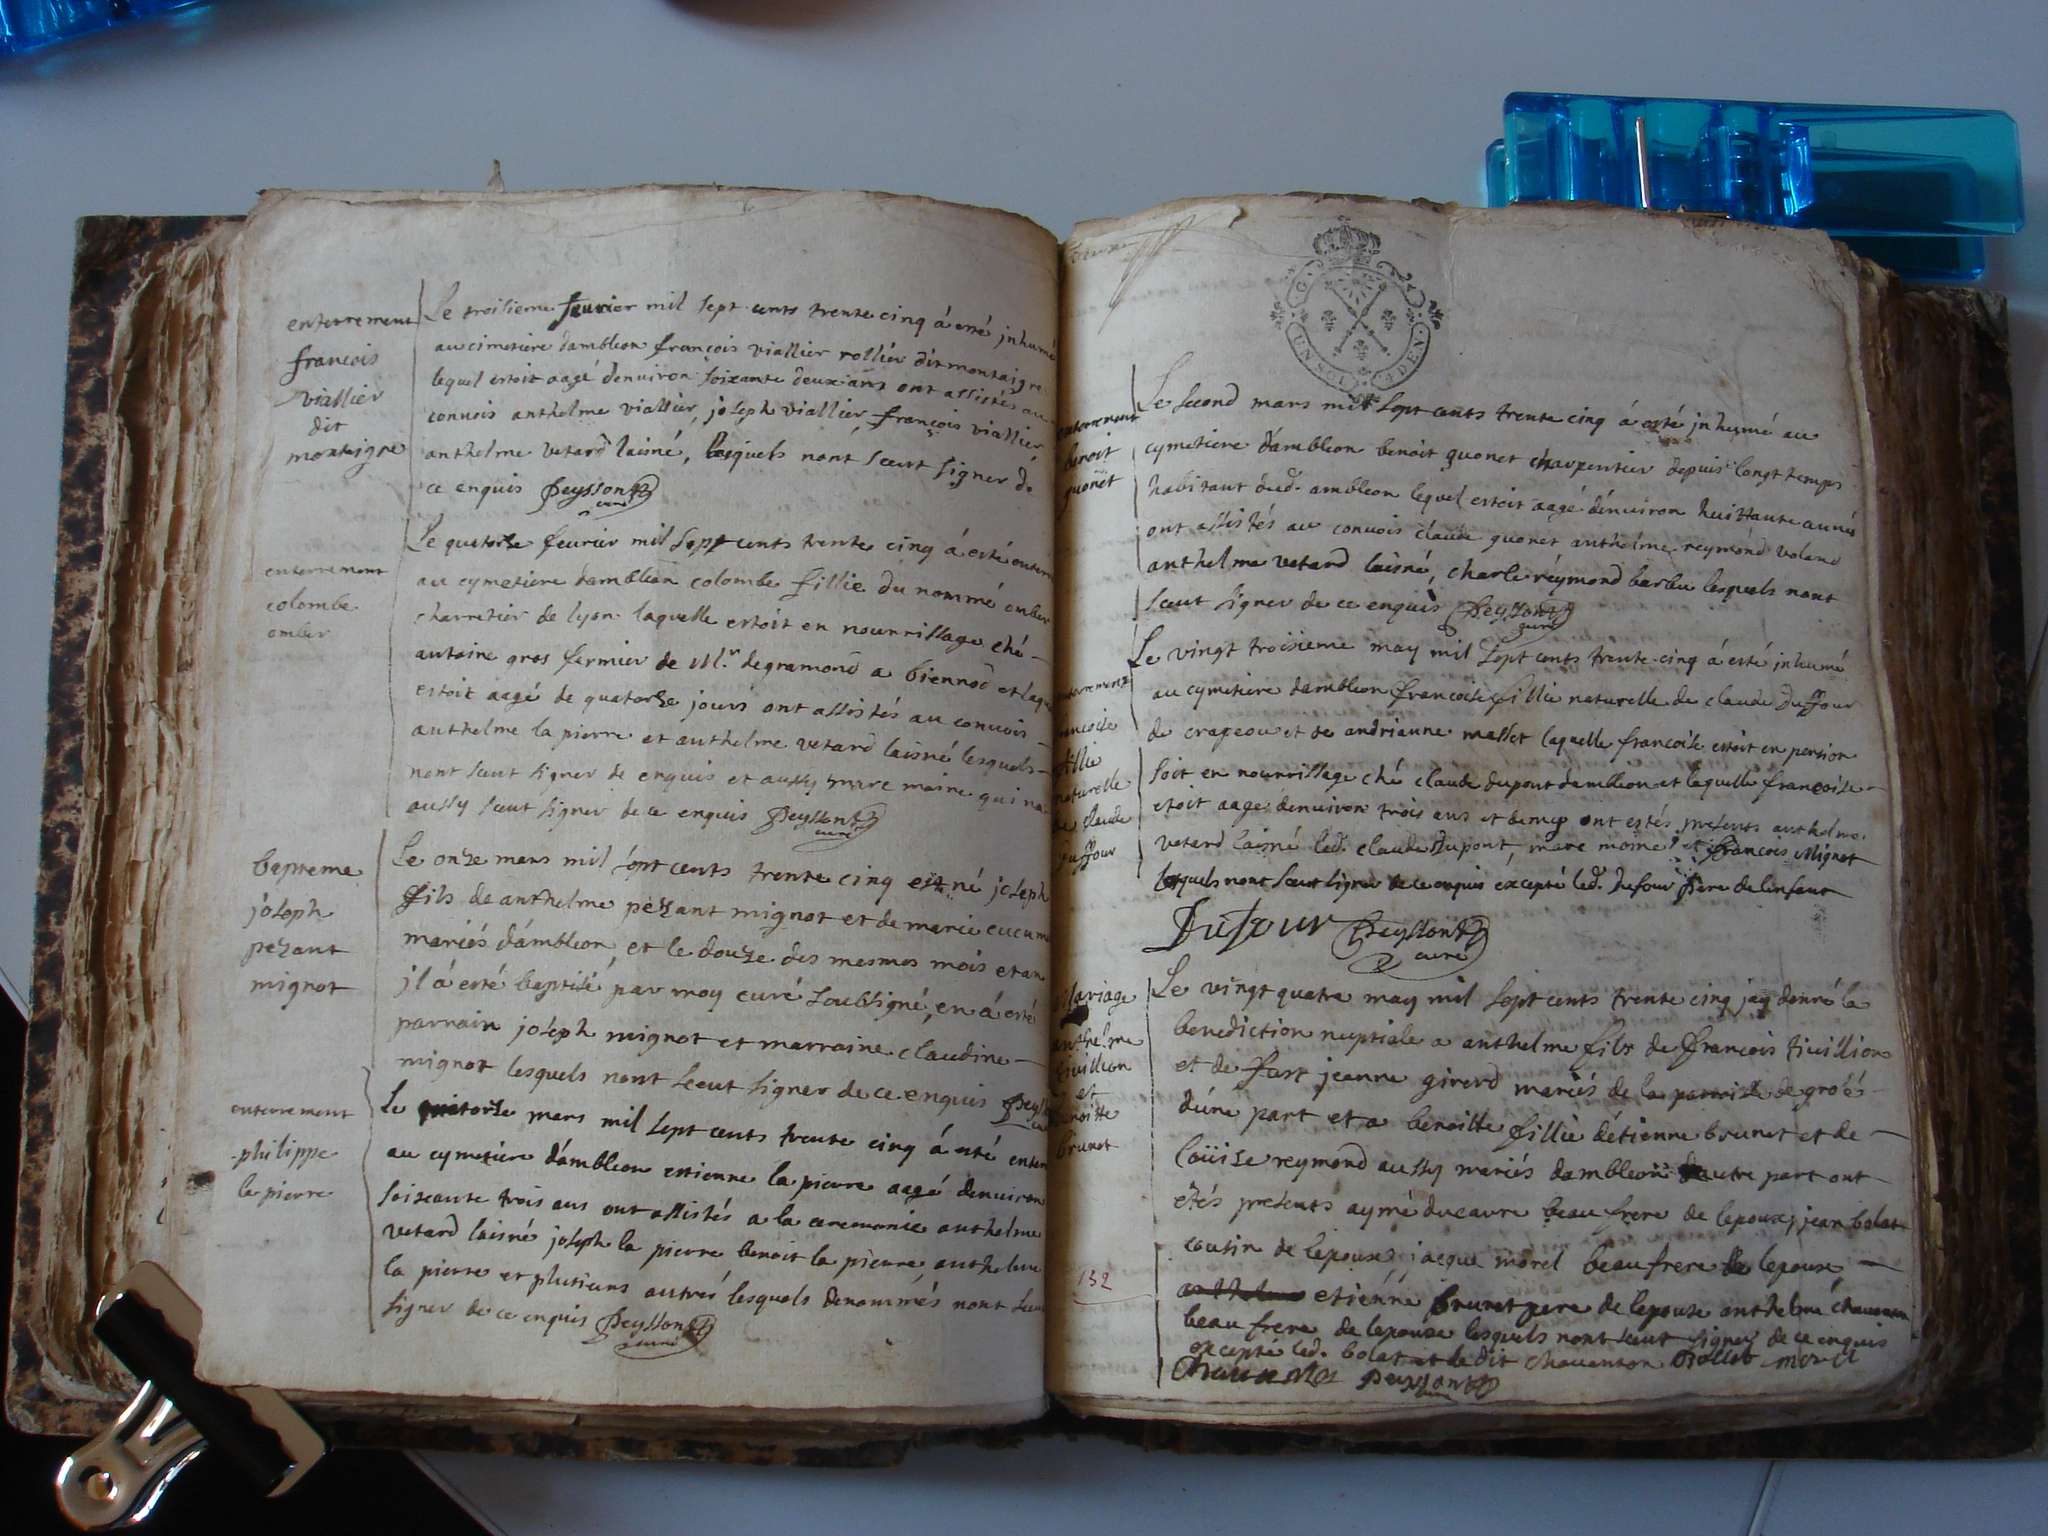 enterrement
françois
viallier
dit
montaigre
Le troisieme feurier mil sept cents trente cinq á esté jnhumé
au cimetiere dambleon françois viallier rollier dit montaigre
lequel estoit aagé denuiron soixante deux ans ont assistés au
conuois anthelme viallier, joseph viallier françois viallier
anthelme vetard laisné, lesquels nont sceut signer de
ce enquis Peysson
curé
enterrement
colombe
Le quatorze feurier mil sept cents trente cinq á esté enterré
au cymetiere dambleon colombe fillie du nommé
charretier de lyon laquelle estoit en nourrissage ché
antoine gros fermier de Mr. degramond a biennod et laque
estoit aagé de quatorze jours ont assistés au conuois
anthelme la pierre et anthelme vetard laisné lesquels
nont sceut signer de enquis et aussy marc moine qui na
aussy sceut signer de ce enquis Peysson
curé
bapteme
joseph
pezant
mignot
Le onze mars mil sept cents trente cinq est né joseph
fils de anthelme pezant mignot et de marie
mariés dámbleon, et le douze des mesmes mois et an
jl á esté baptisé par moy curé soubsigné, en á esté
parrain joseph mignot et marraine claudine
mignot lesquels nont sceut signer de ce enquis Peysson
enterrement
philippe
la pierre
Le quatorze mars mil sept cents trente cinq á esté enter
au cymetiere dámbleon estienne la pierre aagé denuiron
soixante trois ans ont assistés a la ceremonie anthelme
vetard laisné joseph la pierre benoit la pierre anthelme
la pierre et plusieurs autrés lesquels denommés nont sceu
signer de ce enquis Peysson
curé
UN SOL
enterrement
benoit
quonet
Le second mars mil sept cents trente cinq á esté jnhumé au
cymetiere dámbleon benoit quonet charpentier depuis longt temps
habitant aud. ambleon lequel estoit aagé dénuiron huittante années
ont assistés au conuois claude quonet anthelme reymond voland
anthelme vetard laisné, charle réymond barbu lesquels nont
sceut signer de ce enquis Peysson
curé
enterrement
ancoise
fillie
naturelle
de claude
duffour
Le vingt troisieme may mil sept cents trente cinq á esté jnhumé
au cymetiere dambleon francoise fillie naturelle de claude Duffour
de crapeou et de andrianne masset laquelle francoise estoit en pension
soit en nourrissage ché claude dupont dambleon et laquelle françoise
etoit aagé denuiron trois ans et demy ont estés presents anthelme
vetard laisné led. claude Dupont, marc moine et françois Mignot
lesquels nont sceut signer de ce enquis excepté led. dufour pere de lenfant
Dufour Peysson
curé
Mariage
anthelme
tiuillion
et
benoitte
brunet
Le vingt quatre may mil sept cents trente cinq jay donné la
benediction nuptiale a anthelme fils de François tiuillion
et de fust jeanne girerd mariés de la parroisse de gróéé
dúne part et a benoitte fillie détienne brunet et de
loüise reymond aussy mariés dambleon dautre part ont
étés presents aymé ducarre beau frere de lepoux, jean bolat
cousin de lepoux jacque morel beaufrere de lepoux
etiénné brunet pere de lepouse anthelme chauenton
beau frere de lepouse lesquels nont sceut signer de ce enquis
excepté led. bolat et le dit chauenton Bollat morel
Peysson
curé
152